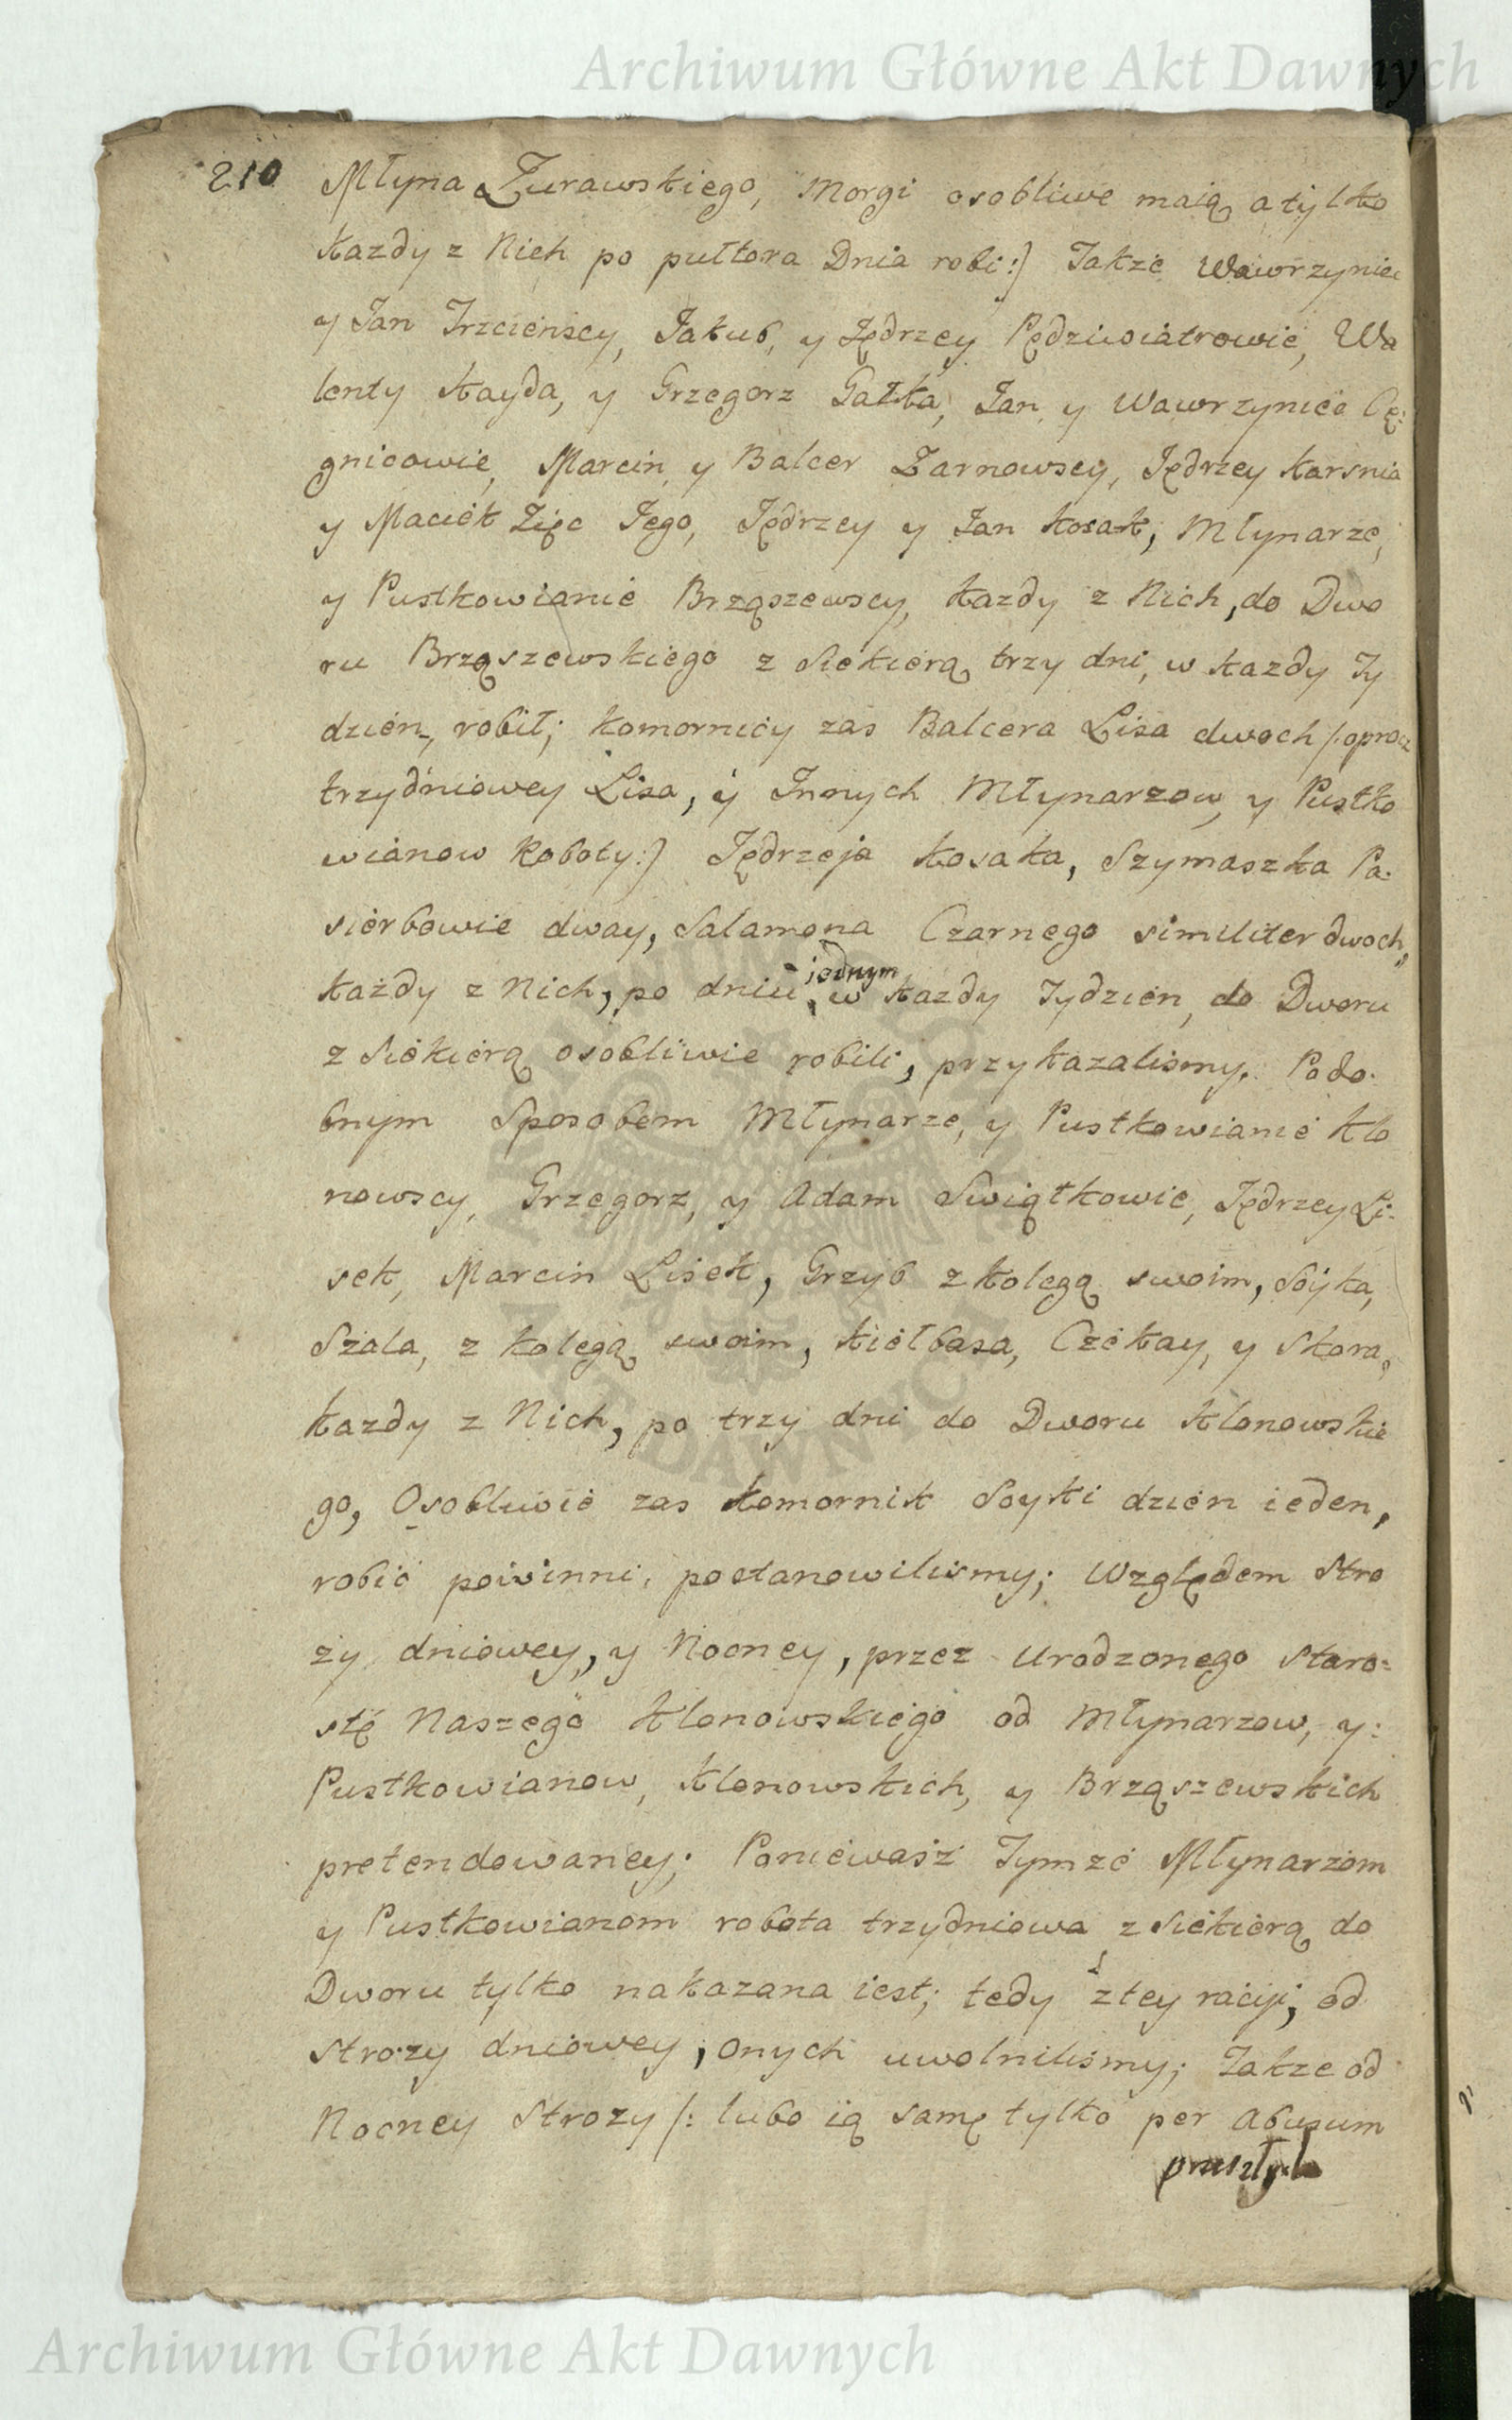 Archiwum Główne Akt Dawnych
210 Młyna Żurawskiego, Morgi osobliwe maią a tylko
każdy z Nich po pułtora Dnia robi:) Także Wawrzyniec
y Jan Trzcienscy, Jakub, y Jędrzey Pędziwiatrowie, Wa
lenty Kayda, y Grzegorz Gałka, Jan y Wawrzyniec Cę:
gnicowie, Marcin y Balcer Żarnowscy, Jędrzey Karsnia
y Maciek Zięc Jego, Jędrzey y Jan Kosak, Młynarze,
y Pustkowianie Brząszewscy, każdy z Nich, do Dwo
ru Brząszewskiego z Siekierą trzy dni, w kazdy Ty
dzien, robił; Komornicy zas Balcera Lisa dwoch /:oprocz
trzydniowey Lisa, y Innych Młynarzow, y Pustko
wianow Roboty:) Jędrzeja Kosaka, Szymaszka Pa:
sierbowie dway, Salamona Czarnego similiter dwoch,
każdy z Nich, po dniu jednym w kazdy Tydzien, do Dworu
z Siekierą osobliwie robili, przykazalismy. Podo:
bnym Sposobem Młynarze, y Pustkowianie Klo
nowscy, Grzegorz, y Adam Swiątkowie, Jędrzey Li:
sek, Marcin Lisek, Grzyb z kolegą swoim, Soyka,
Szala, z kolegą swoim, Kiełbasa, Czekay, y Skora,
kazdy z Nich, po trzy dni do Dworu Klonowskie
go, Osobliwie zas Komornik Soyki dzien ieden,
robic powinni, postanowilismy; Względem Stro
ży dniowey, y Nocney, przez Urodzonego Staro:
stę Naszego Klonowskiego od Młynarzow, y:
Pustkowianow, Klonowskich, y Brząszewskich
pretendowaney; Ponieważ Tymże Młynarzom
y Pustkowianom robota trzydniowa z Siekierą do
Dworu tylko nakazana iest; tedy z tey raciji, od
Strozy dniowey, onych uwolnilismy; Takze od
Nocney Strozy /: lubo ią samę tylko per abusum
przeszłych
Archiwum Główne Akt Dawnych